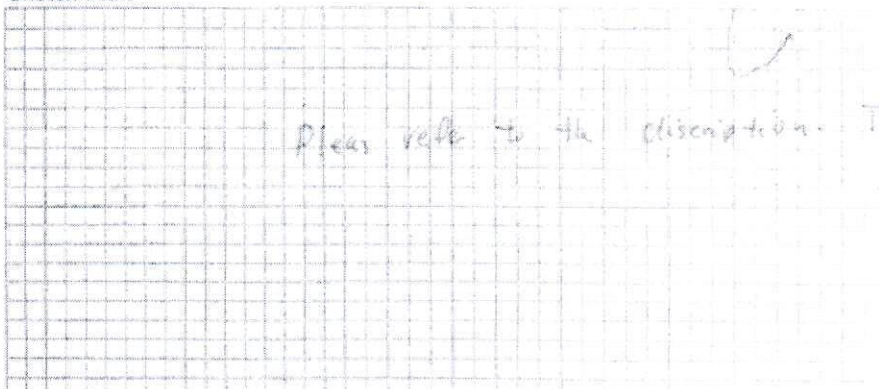 Pleas refer to the discription. T